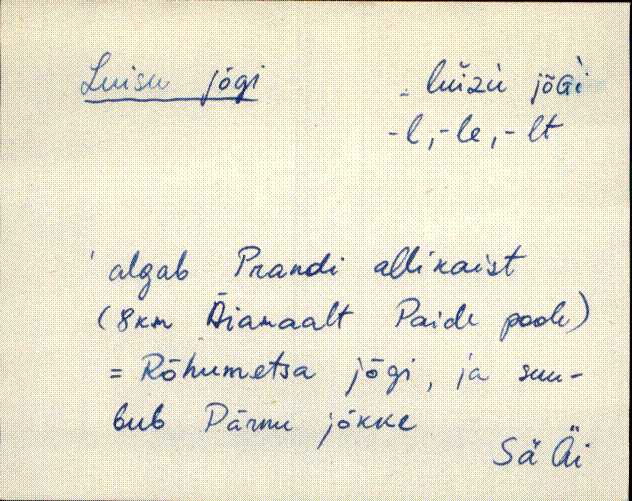 Luisu jõgi
luizù jõGì
-l, -le, -lt
algab Prandi allikaist
(8 km Äiamaalt Paide poole)
= Rõhumetsa jõgi, ja suu-
bub Pärnu jõkke
Sä Äi